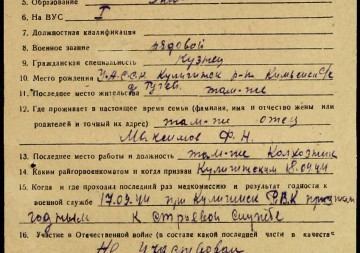 5. Образование
6. На ВУС I
7. Должностная квалификация
8. Военное звание рядовой
9. Гражданская специальность Кузнец
10. Место рождения УАССР Кулигинск р-н с/с
11. Последнее место жительства там-же
12. Где проживает в настоящее время семья (фамилия, имя и отчество жены или
родителей и точный их адрес) там-же отец
Максимов Ф. Н.
13. Последнее место работы и должность там-же Колхозник
14. Каким райгорвоенкоматом и когда призван Кулигинским
15. Когда и где проходил последний раз медкомиссию и результат годности к
военной службе 17.09.44 при Кулигинск РВК признан
годным к строевой службе
16. Участие в Отечественной войне (в составе какой последней части в качестве
Не участвовал